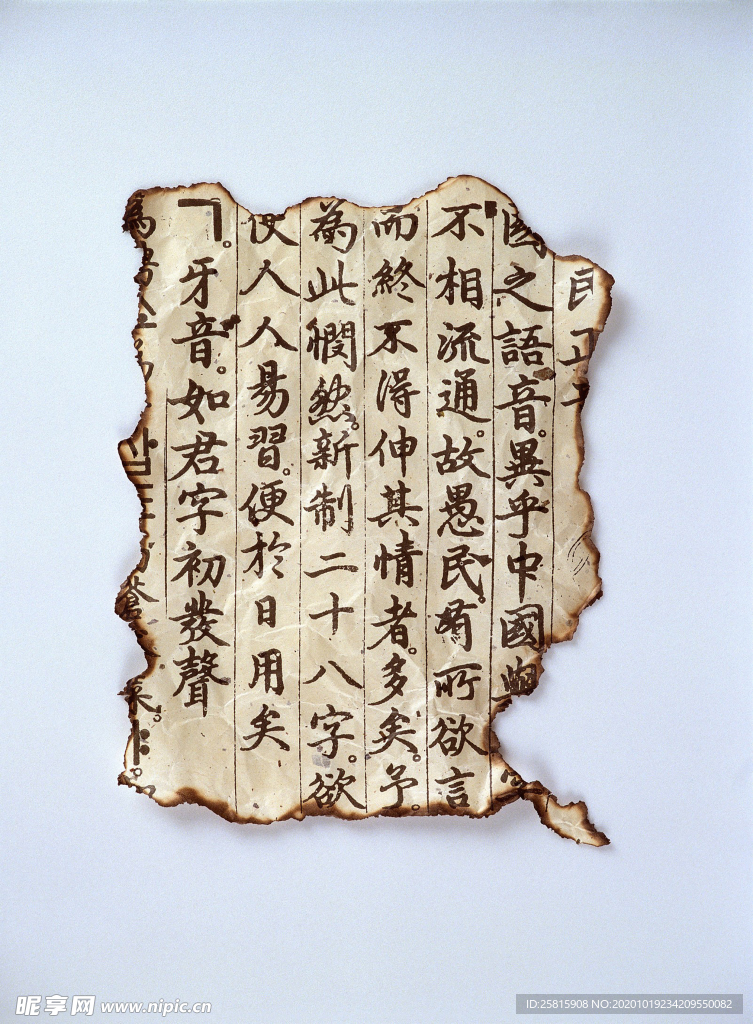 國之語音。異乎中國
不相流通。故愚民。有所欲言
而終不得伸其情者。多矣。予。
為此憫然。新制二十八字。欲
使人人易習。便於日用矣
ㄱ。牙音。如君字初發聲
昵享网 www.nipic.cn
ID:25815908 NO:20201019234209550082